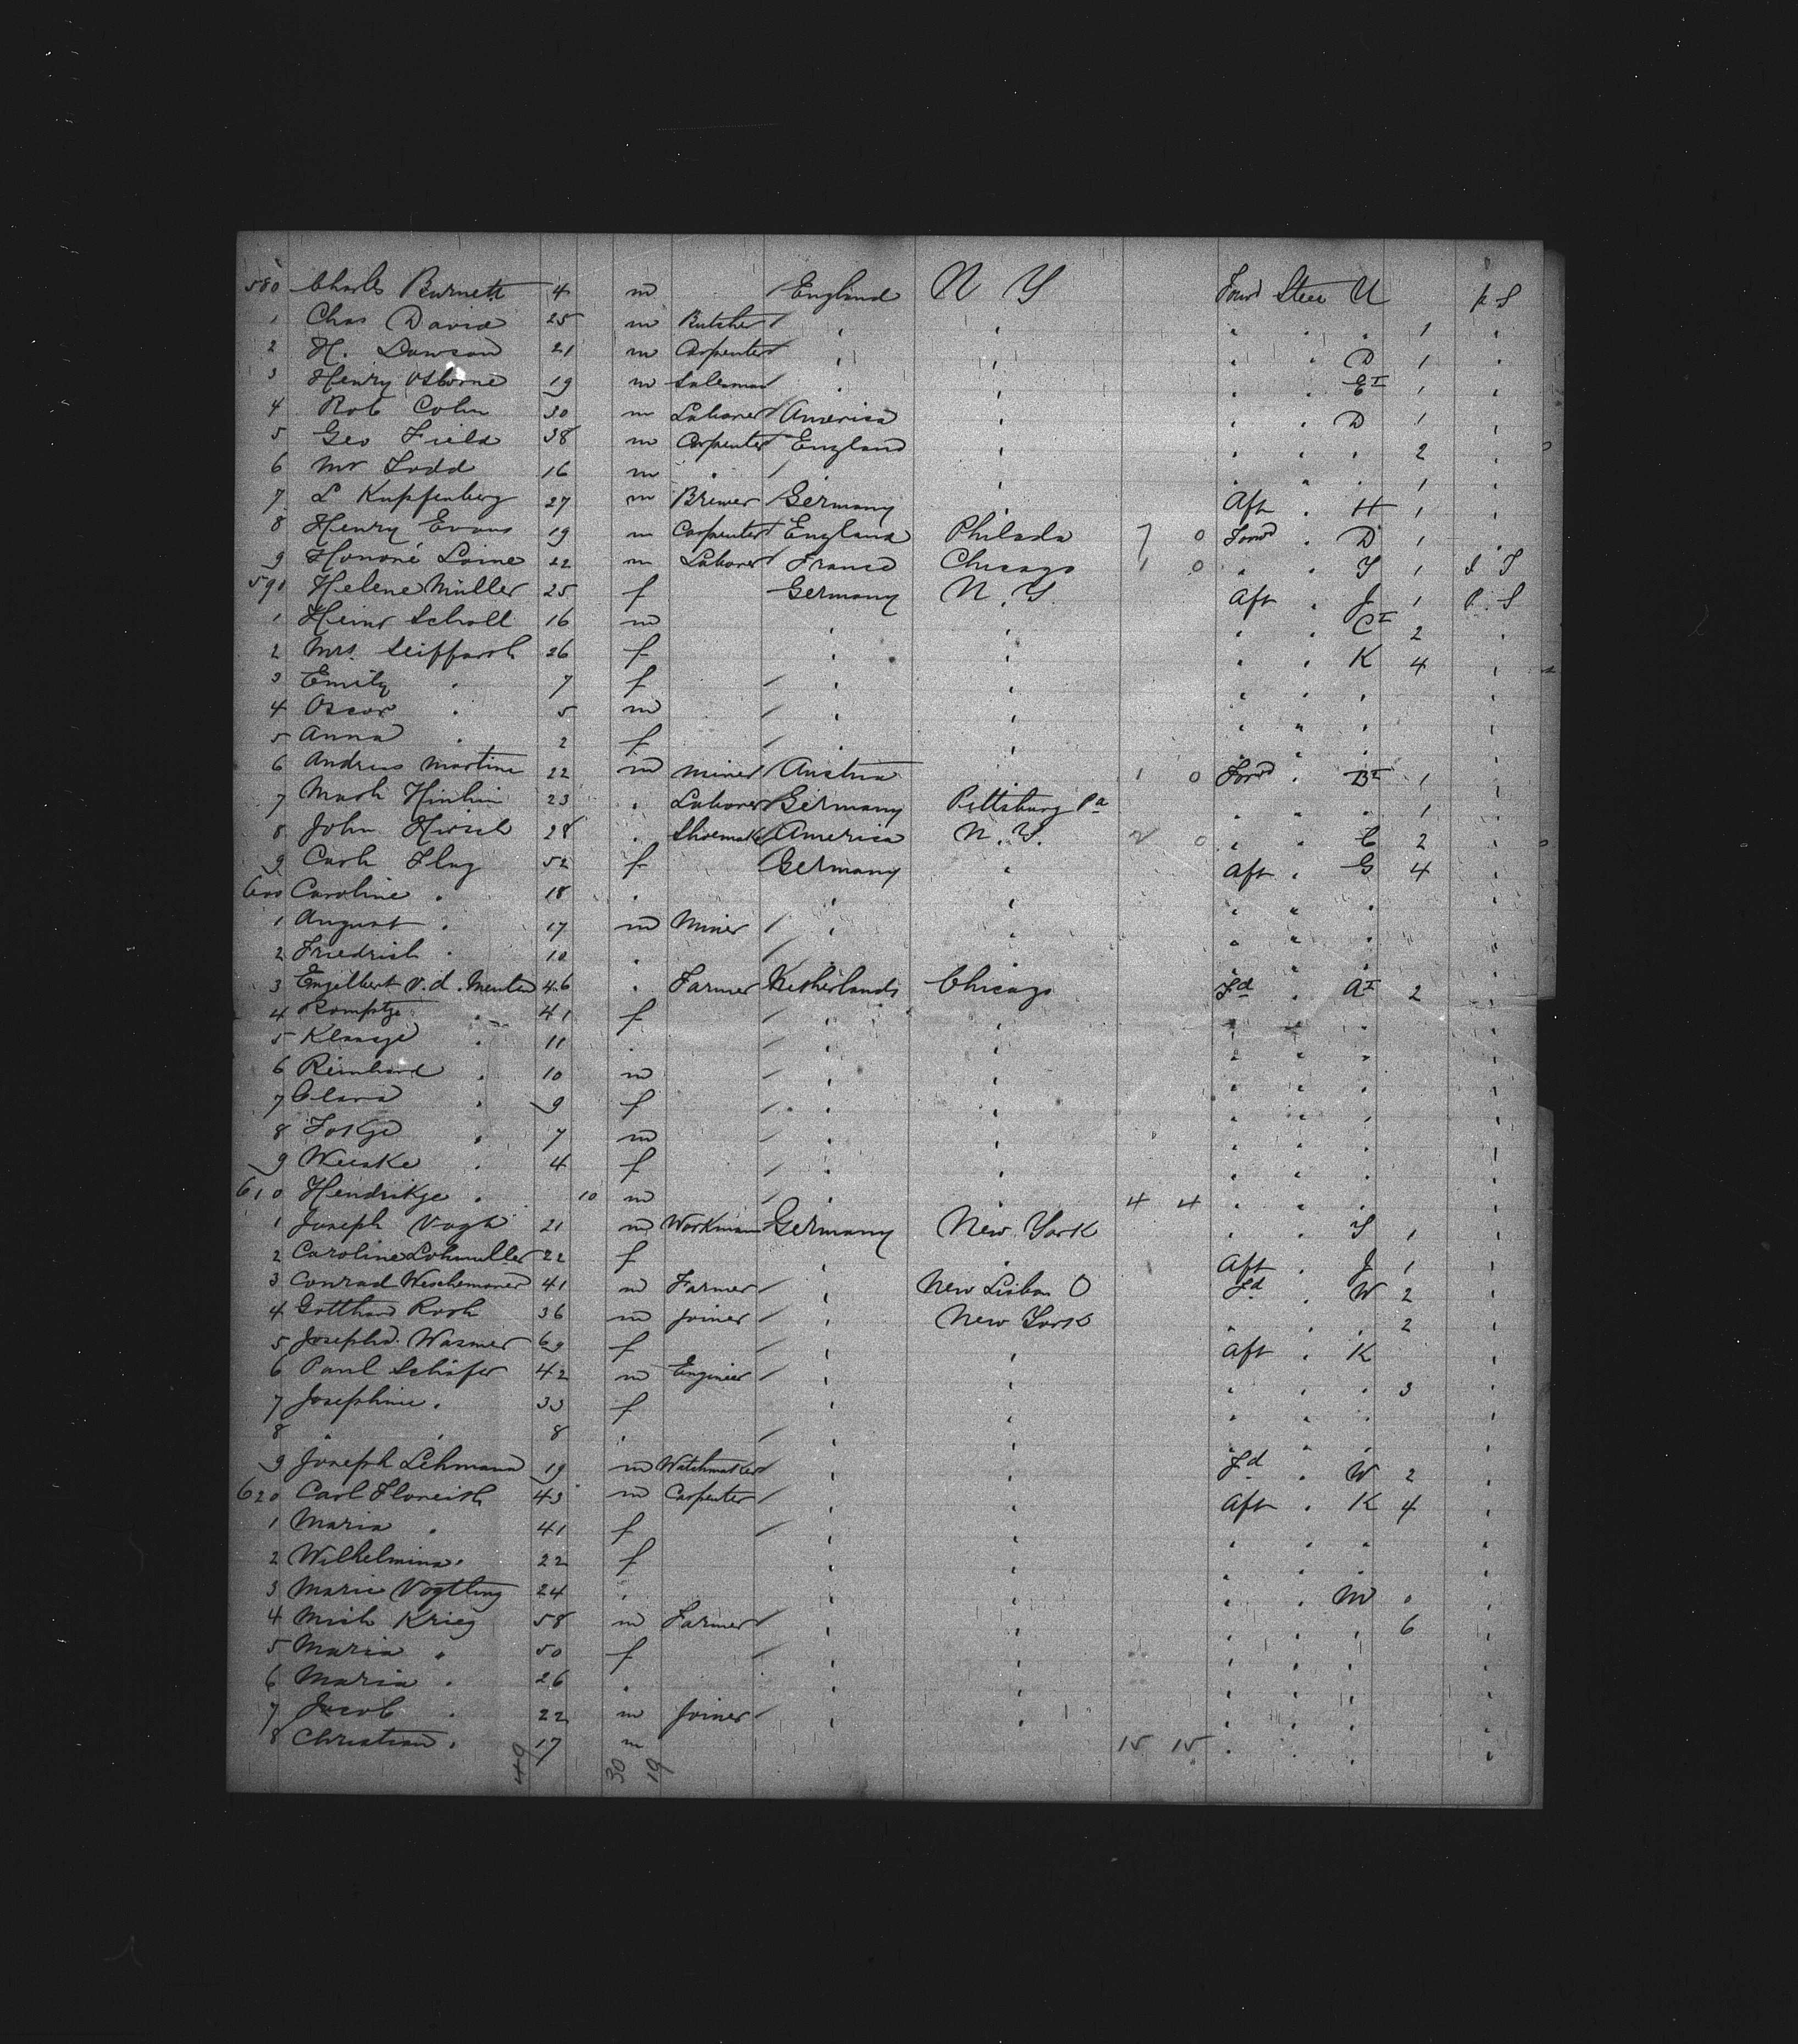 580 Charles Burnett 4 m England N Y Forwd Stee U p S
1 Chas David 25 m Butcher / " " " " 1 "
2 H. Dawson 21 m Carpenter / " " " " D 1 "
3 Henry Osborne 19 m Salesman / " " " " E I 1 "
4 Rob Cohn 30 m Laborer / America " " " D 1 "
5 Geo Field 38 m Carpenter England " " " " 2 "
6 Mr Todd 16 m " / " " " " " 1 "
7 L Kupfenberg 27 m Brewer Germany " Aft " H 1 "
8 Henry Evans 19 m Carpenter England Philada 7 0 Forwd " D 1 "
9 Honoré Loine 22 m Laborer France Chicago 1 0 " " Y 1 S S
591 Helene Müller 25 f Germany N. Y. Aft " J 1 P. S
1 Heinr Scholl 16 m " " " " C I 2 "
2 Mrs. Seiffarth 26 f " " " " K 4 "
3 Emily " 7 f / " " " " " "
4 Oscar " 5 m / " " " " " "
5 Anna " 2 f / " " " " " "
6 Andreas Martini 22 m Miner / Austria " 1 0 Forwd " B I 1 "
7 23 " Laborer Germany Pittsburg Pa " " " 1 "
8 John Hirsch 28 " Shoemaker America N. Y. 2 0 " " C 2 "
9 Cath Flug 52 f / Germany " Aft " G 4 "
600 Caroline " 18 " " " " " " "
1 August " 17 m Miner / " " " " " "
2 Friedrich " 10 " / " " " " " "
3 Engelbert v. d. Meulen 46 " Farmer Netherlands Chicago Fd " A I 2 "
4 Romptje " 41 f / " " " " " "
5 Klaasje " 11 " / " " " " " "
6 Reinhard " 10 m / " " " " " "
7 Clara " 9 f / " " " " " "
8 Fokje " 7 m / " " " " " "
9 Weiske " 4 f / " " " " " "
610 Hendrikje " 10 m / " " 4 4 " " " "
1 Joseph Vogt 21 m Workman Germany New York " " Y 1 "
2 Caroline Lohmuller 22 f " " Aft " J 1 "
3 Conrad 41 m Farmer / " New Lisbon O Fd " W 2 "
4 Gotthard Roth 36 m Joiner / " New York " " " 2 "
5 Josepha Wasmer 69 f / " " Aft " K "
6 Paul Schäfer 42 m Engineer / " " " " " 3 "
7 Josephine " 33 f " " " " " "
8 " " 8 " / " " " " " "
9 Joseph Lehmann 19 m Watchmaker / " " Fd " W 2 "
620 Carl 43 m Carpenter / " " Aft " K 4 "
1 Maria " 41 f / " " " " " "
2 Wilhelmina " 22 f " " " " " "
3 Marie Vogtling 24 " " " " " M " "
4 Mich Krieg 58 m Farmer / " " " " " 6 "
5 Maria " 50 f / " " " " " "
6 Maria " 26 " " " " " " "
7 Jacob " 22 m Joiner / " " " " " "
8 Christian " 17 m " 15 15 " " " "
49 30 19